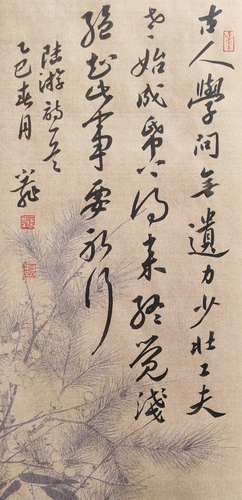 古人學問無遺力少壯工夫
老始成帋上得來終覺淺
絕知此事要躬行
陸游詩一首
乙巳春月